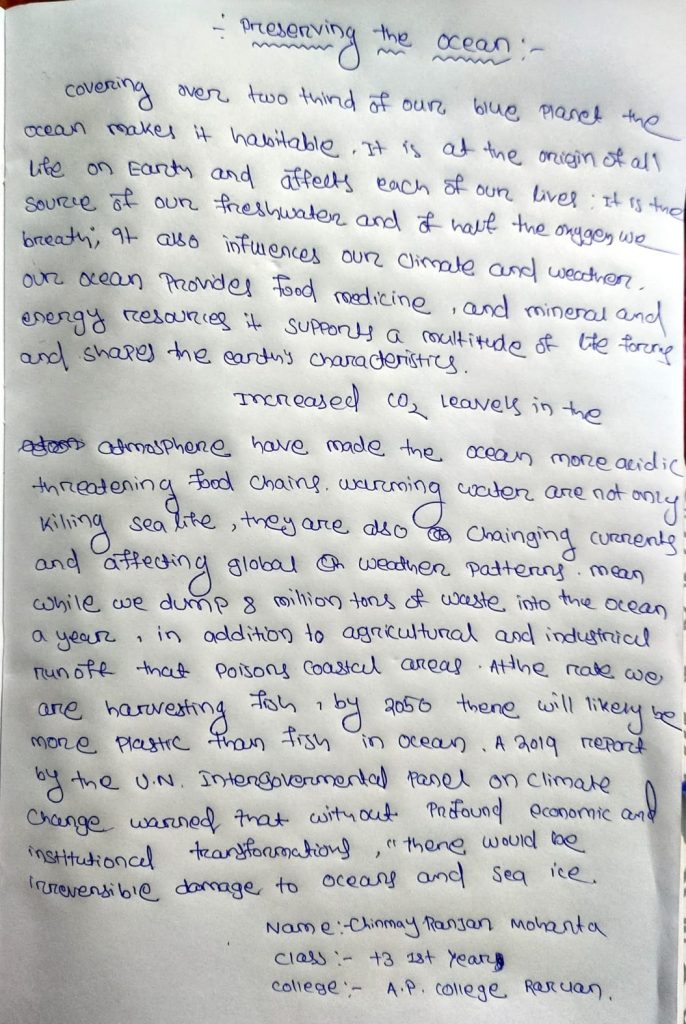 :- Preserving the ocean :-
covering over two third of our blue planet the
ocean makes it habitable. It is at the origin of all
life on Earth and affects each of our lives : it is the
source of our freshwater and of half the oxygen we
breath; It also influences our climate and weather.
our ocean provides food medicine, and mineral and
energy resources it supports a multitude of life forms
and shapes the earth's characteristics.
Increased CO2 leavels in the
atmosphere have made the ocean more acidic
threatening food chains. warming water are not only
killing sea life, they are also chainging currents
and affecting global weather patterns. mean
while we dump 8 million tons of waste into the ocean
a year, in addition to agricultural and industrial
runoff that poisons coastal areas. At the rate we
are harvesting fish, by 2050 there will likely be
more plastic than fish in ocean. A 2019 report
by the U.N. Intergovernmental Panel on climate
change warned that without profound economic and
institutional transformations, "there would be
irreversible damage to oceans and sea ice.
Name :- Chinmay Ranjan Mohanta
class :- +3 1st Year
college :- A.P. college Raruan.